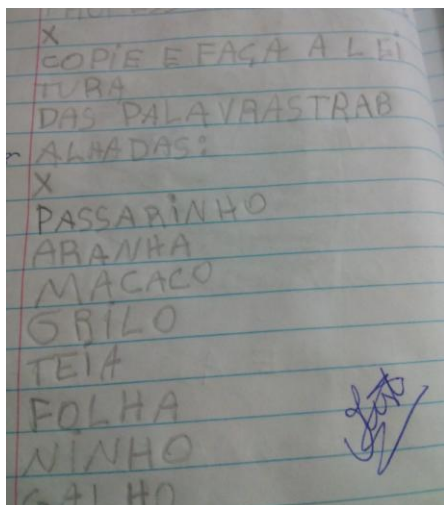 X
COPIE E FAÇA A LEI
TURA
DAS PALAVRASTRAB
ALHADAS:
X
PASSARINHO
ARANHA
MACACO
GRILO
TEIA
FOLHA
NINHO
GALHO